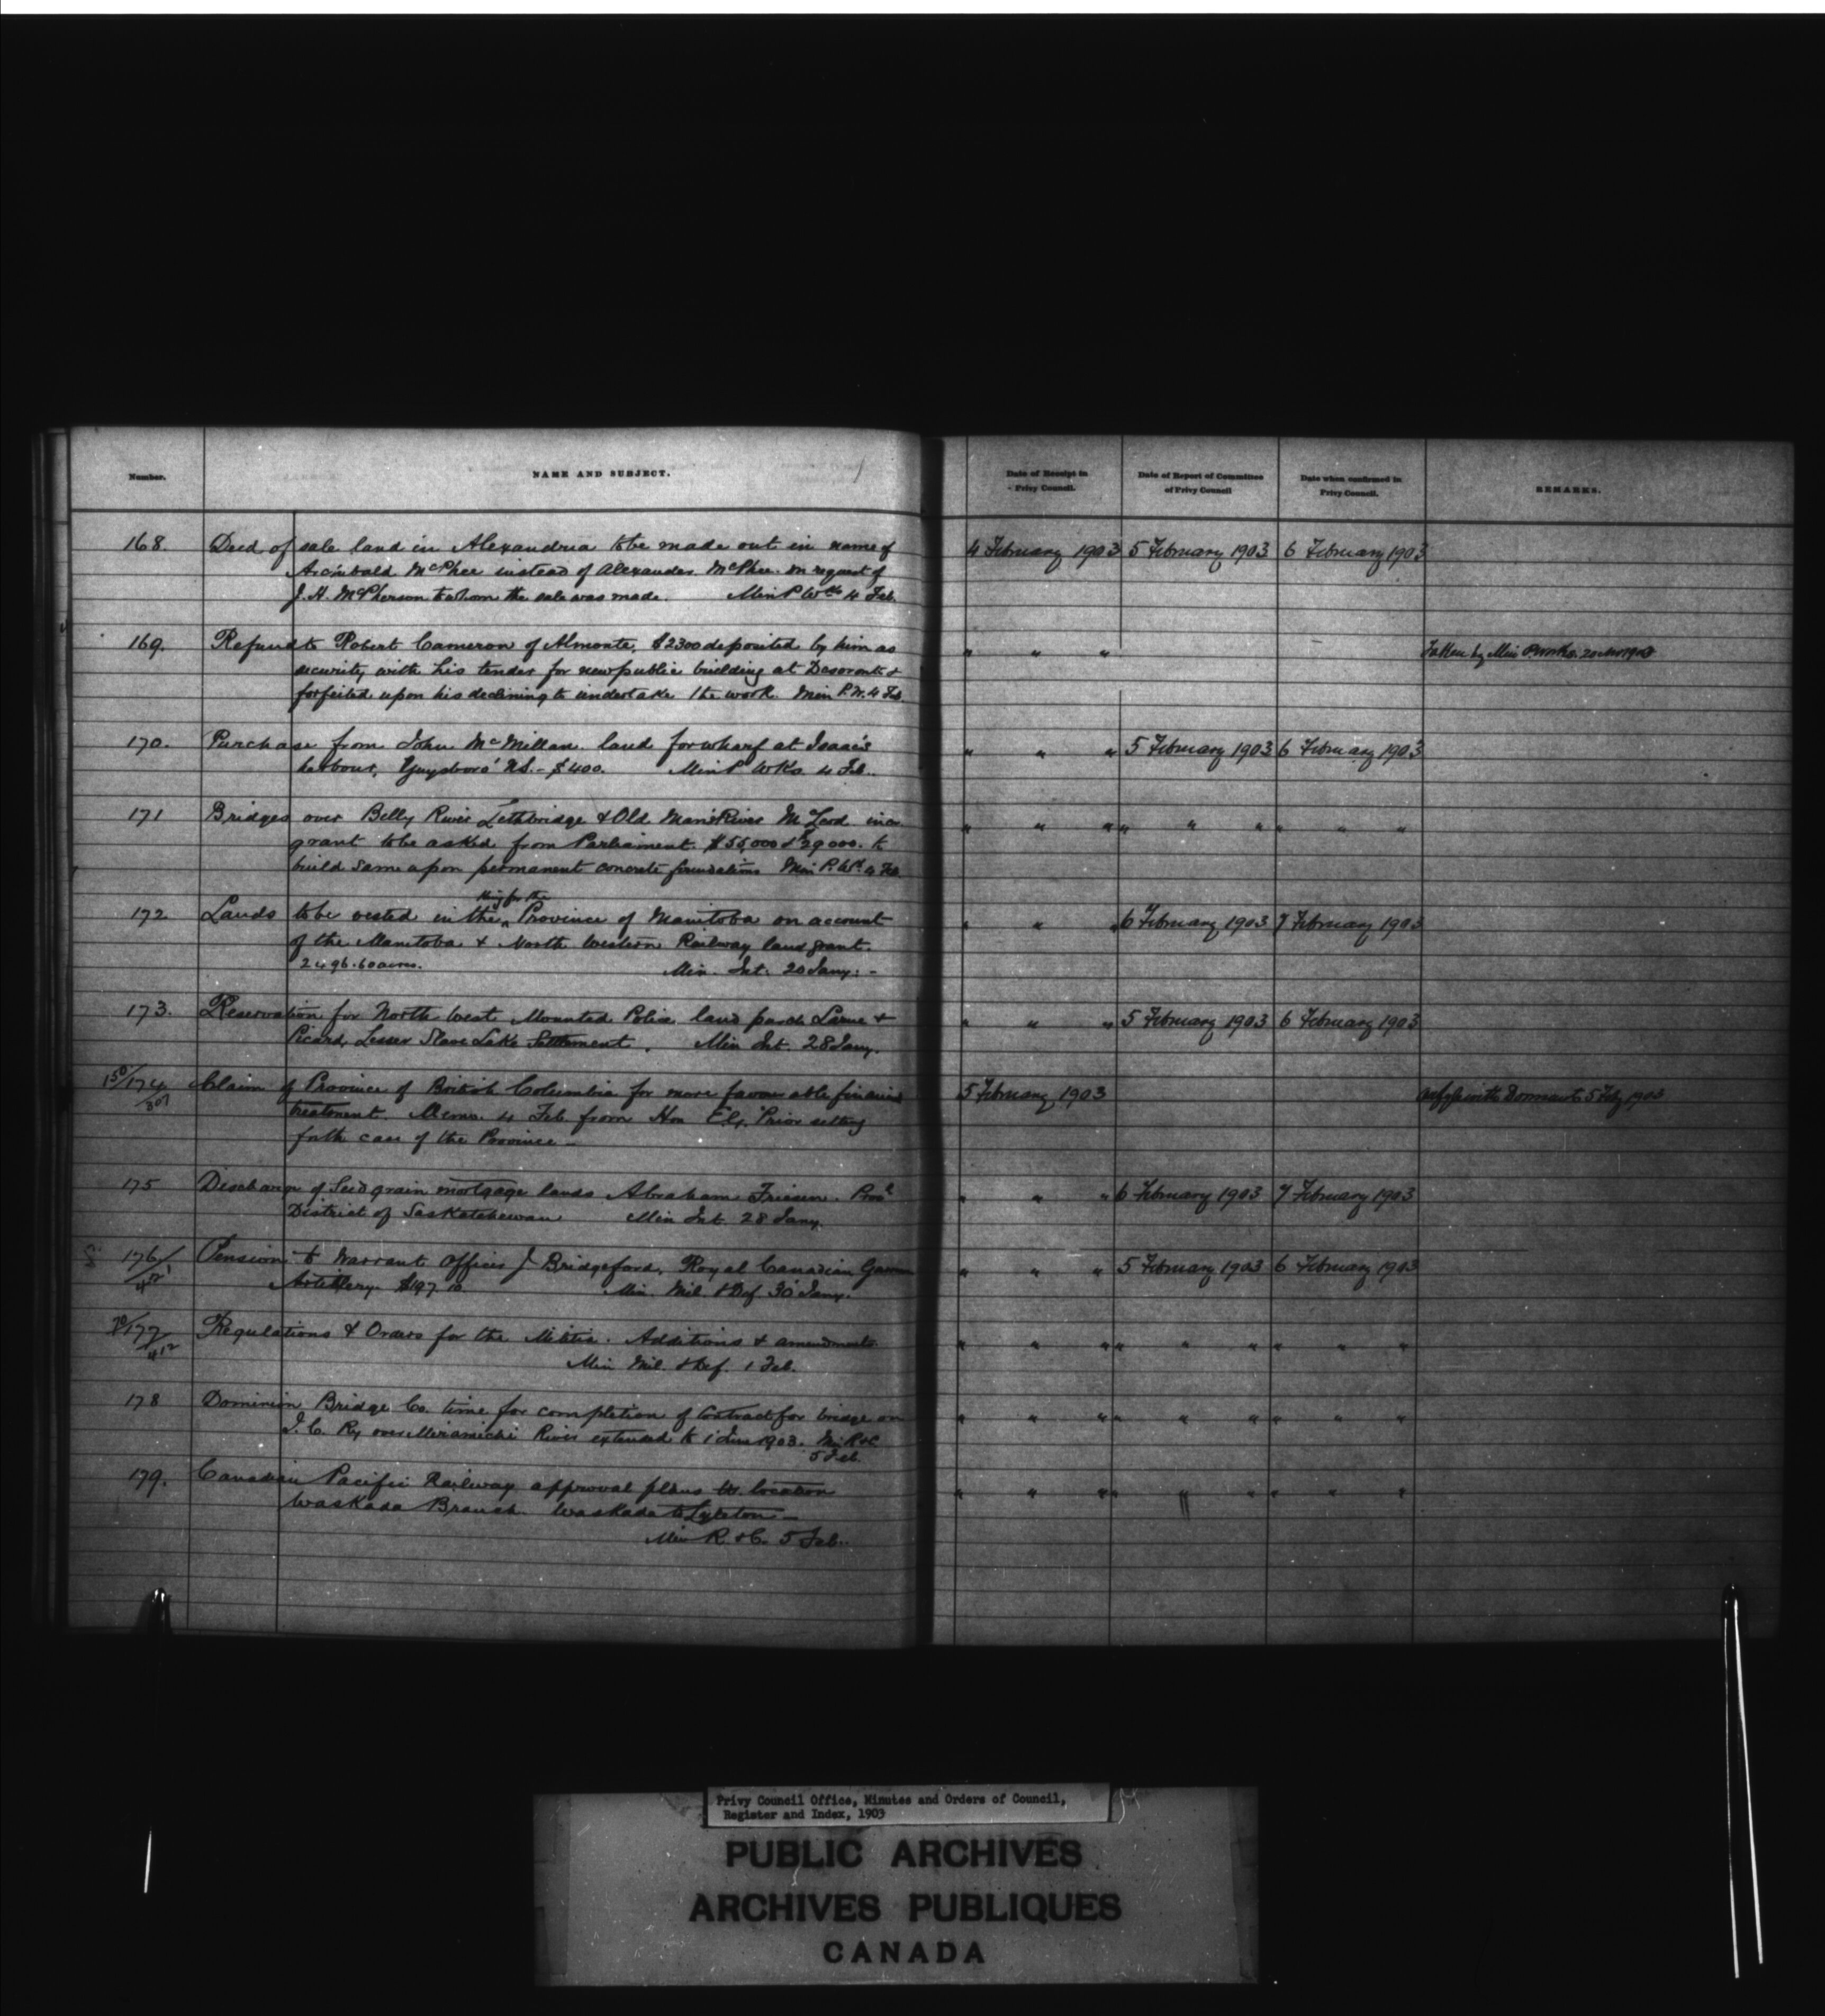 Number.
NAME AND SUBJECT.
Date of Receipt in
Privy Council.
Date of Report of Committee
of Privy Council
Date when confirmed in
Privy Council.
REMARKS.
168. Deed of sale land in Alexandria to be made out in name of 4 February 1903 5 February 1903 6 February 1903
Archibald McPhee instead of Alexander McPhee on request of
J. H. McPherson to whom the sale was made. Min P Wks 4 Feb.
169. Refund to Robert Cameron of Almonte, $2300 deposited by him as " " " Taken by Min P. Wrks. 1903
security with his tender for new public building at Deseronto &
forfeited upon his declining to undertake the work. Min P. W. 4 Feb.
170. Purchase from John McMillan land for wharf at Isaac's " " " 5 February 1903 6 February 1903
harbour, Guysboro' N.S. - $400. Min P Wks 4 Feb.
171 Bridges over Belly River Lethbridge & Old Man's River McLeod " " " " " " " " "
grant to be asked from Parliament $55,000 & $29000. to
build same upon permanent concrete foundations Min P. Wks 4 Feb.
King for the
172 Lands to be vested in the ^ Province of Manitoba on account " " " 6 February 1903 7 February 1903
of the Manitoba & North Western Railway land grant.
2496.60 acres. Min. Int. 20 Jany. -
173. Reservation for North West Mounted Police land purch Larue & " " " 5 February 1903 6 February 1903
Picard, Lesser Slave Lake Settlement. Min Int. 28 Jany.
150/174/307 Claim of Province of British Columbia for more favourable financial 5 February 1903 with Dormants 5 Feby 1903
treatment. Memo. 4 Feb from Hon E. G. Prior setting
forth case of the Province -
175 Discharge of Seed grain mortgage lands Abraham Friesen. Provl " " " 6 February 1903 7 February 1903
District of Saskatchewan Min Int 28 Jany.
176/412 Pension to Warrant Officer J Bridgeford, Royal Canadian Garrison " " " 5 February 1903 6 February 1903
Artillery $197.10 Min. Mil. & Def. 30 Jany.
70/177/412 Regulations & Orders for the Militia. Additions & amendments " " " " " " " " "
Min Mil. & Def. 1 Feb.
178 Dominion Bridge Co. time for completion of Contract for bridge on " " " " " " " " "
I. C. Ry over Miramichi River extended to 1 June 1903. Min R & C
5 Feb.
179. Canadian Pacific Railway approval plans location " " " " " " " "
Waskada Branch Waskada to Lyleton -
Min R. & C. 5 Feb.
Privy Council Office, Minutes and Orders of Council,
Register and Index, 1903
PUBLIC ARCHIVES
ARCHIVES PUBLIQUES
CANADA